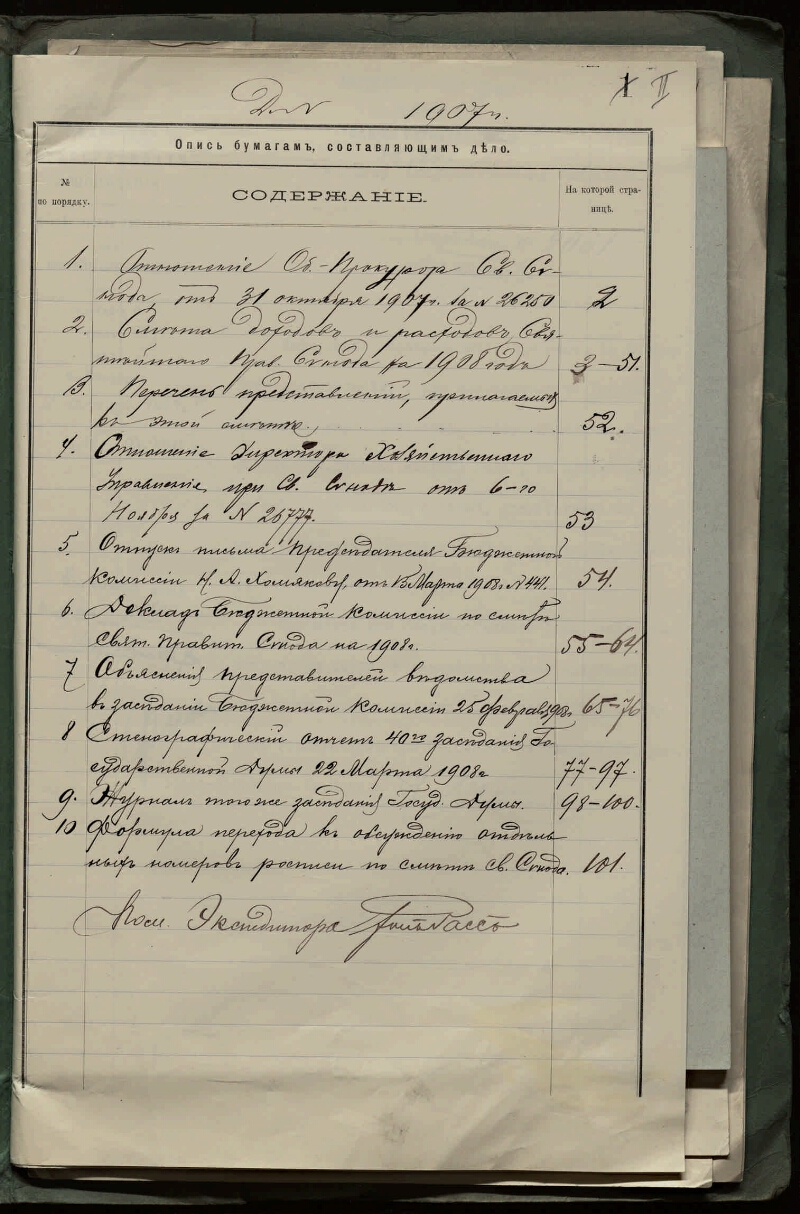 II
1907 г.
Опись бумагамъ, составляющимъ дѣло.
№ по порядку.
СОДЕРЖАНІЕ.
На которой страницѣ.
1. Отношеніе Об.-Прокурора Св. Си-
нода, отъ 31 октября 1907 г. за № 26250 2
2. Смѣта доходовъ и расходовъ Свя-
тѣйшаго Прав. Синода на 1908 годъ 3-51.
3. Перечень представленій, прилагаемыхъ
къ этой смѣтѣ. 52.
4. Отношеніе Директора Хозяйственнаго
Управленія при Св. Синодѣ отъ 6-го
Ноября за № 26777. 53
5. Отпускъ письма Предсѣдателя Бюджетной
Комиссіи Н. А. Хомякову, отъ 13 Марта 1908 г. № 441. 54.
6. Докладъ Бюджетной Комиссіи по смѣтѣ
Свят. Правит. Синода на 1908 г. 55-64.
7 Объясненія представителей вѣдомства
въ засѣданіи Бюджетной Комиссіи 25 февраля 1908 г. 65-76
8 Стенографическій отчетъ 40го засѣданія Го-
сударственной Думы 22 Марта 1908 г. 77-97.
9. Журналъ того же засѣданія Госуд. Думы. 98-100.
10 Формула перехода къ обсужденію отдѣль-
ныхъ номеровъ росписи по смѣтѣ св. Синода. 101.
Экспедитора